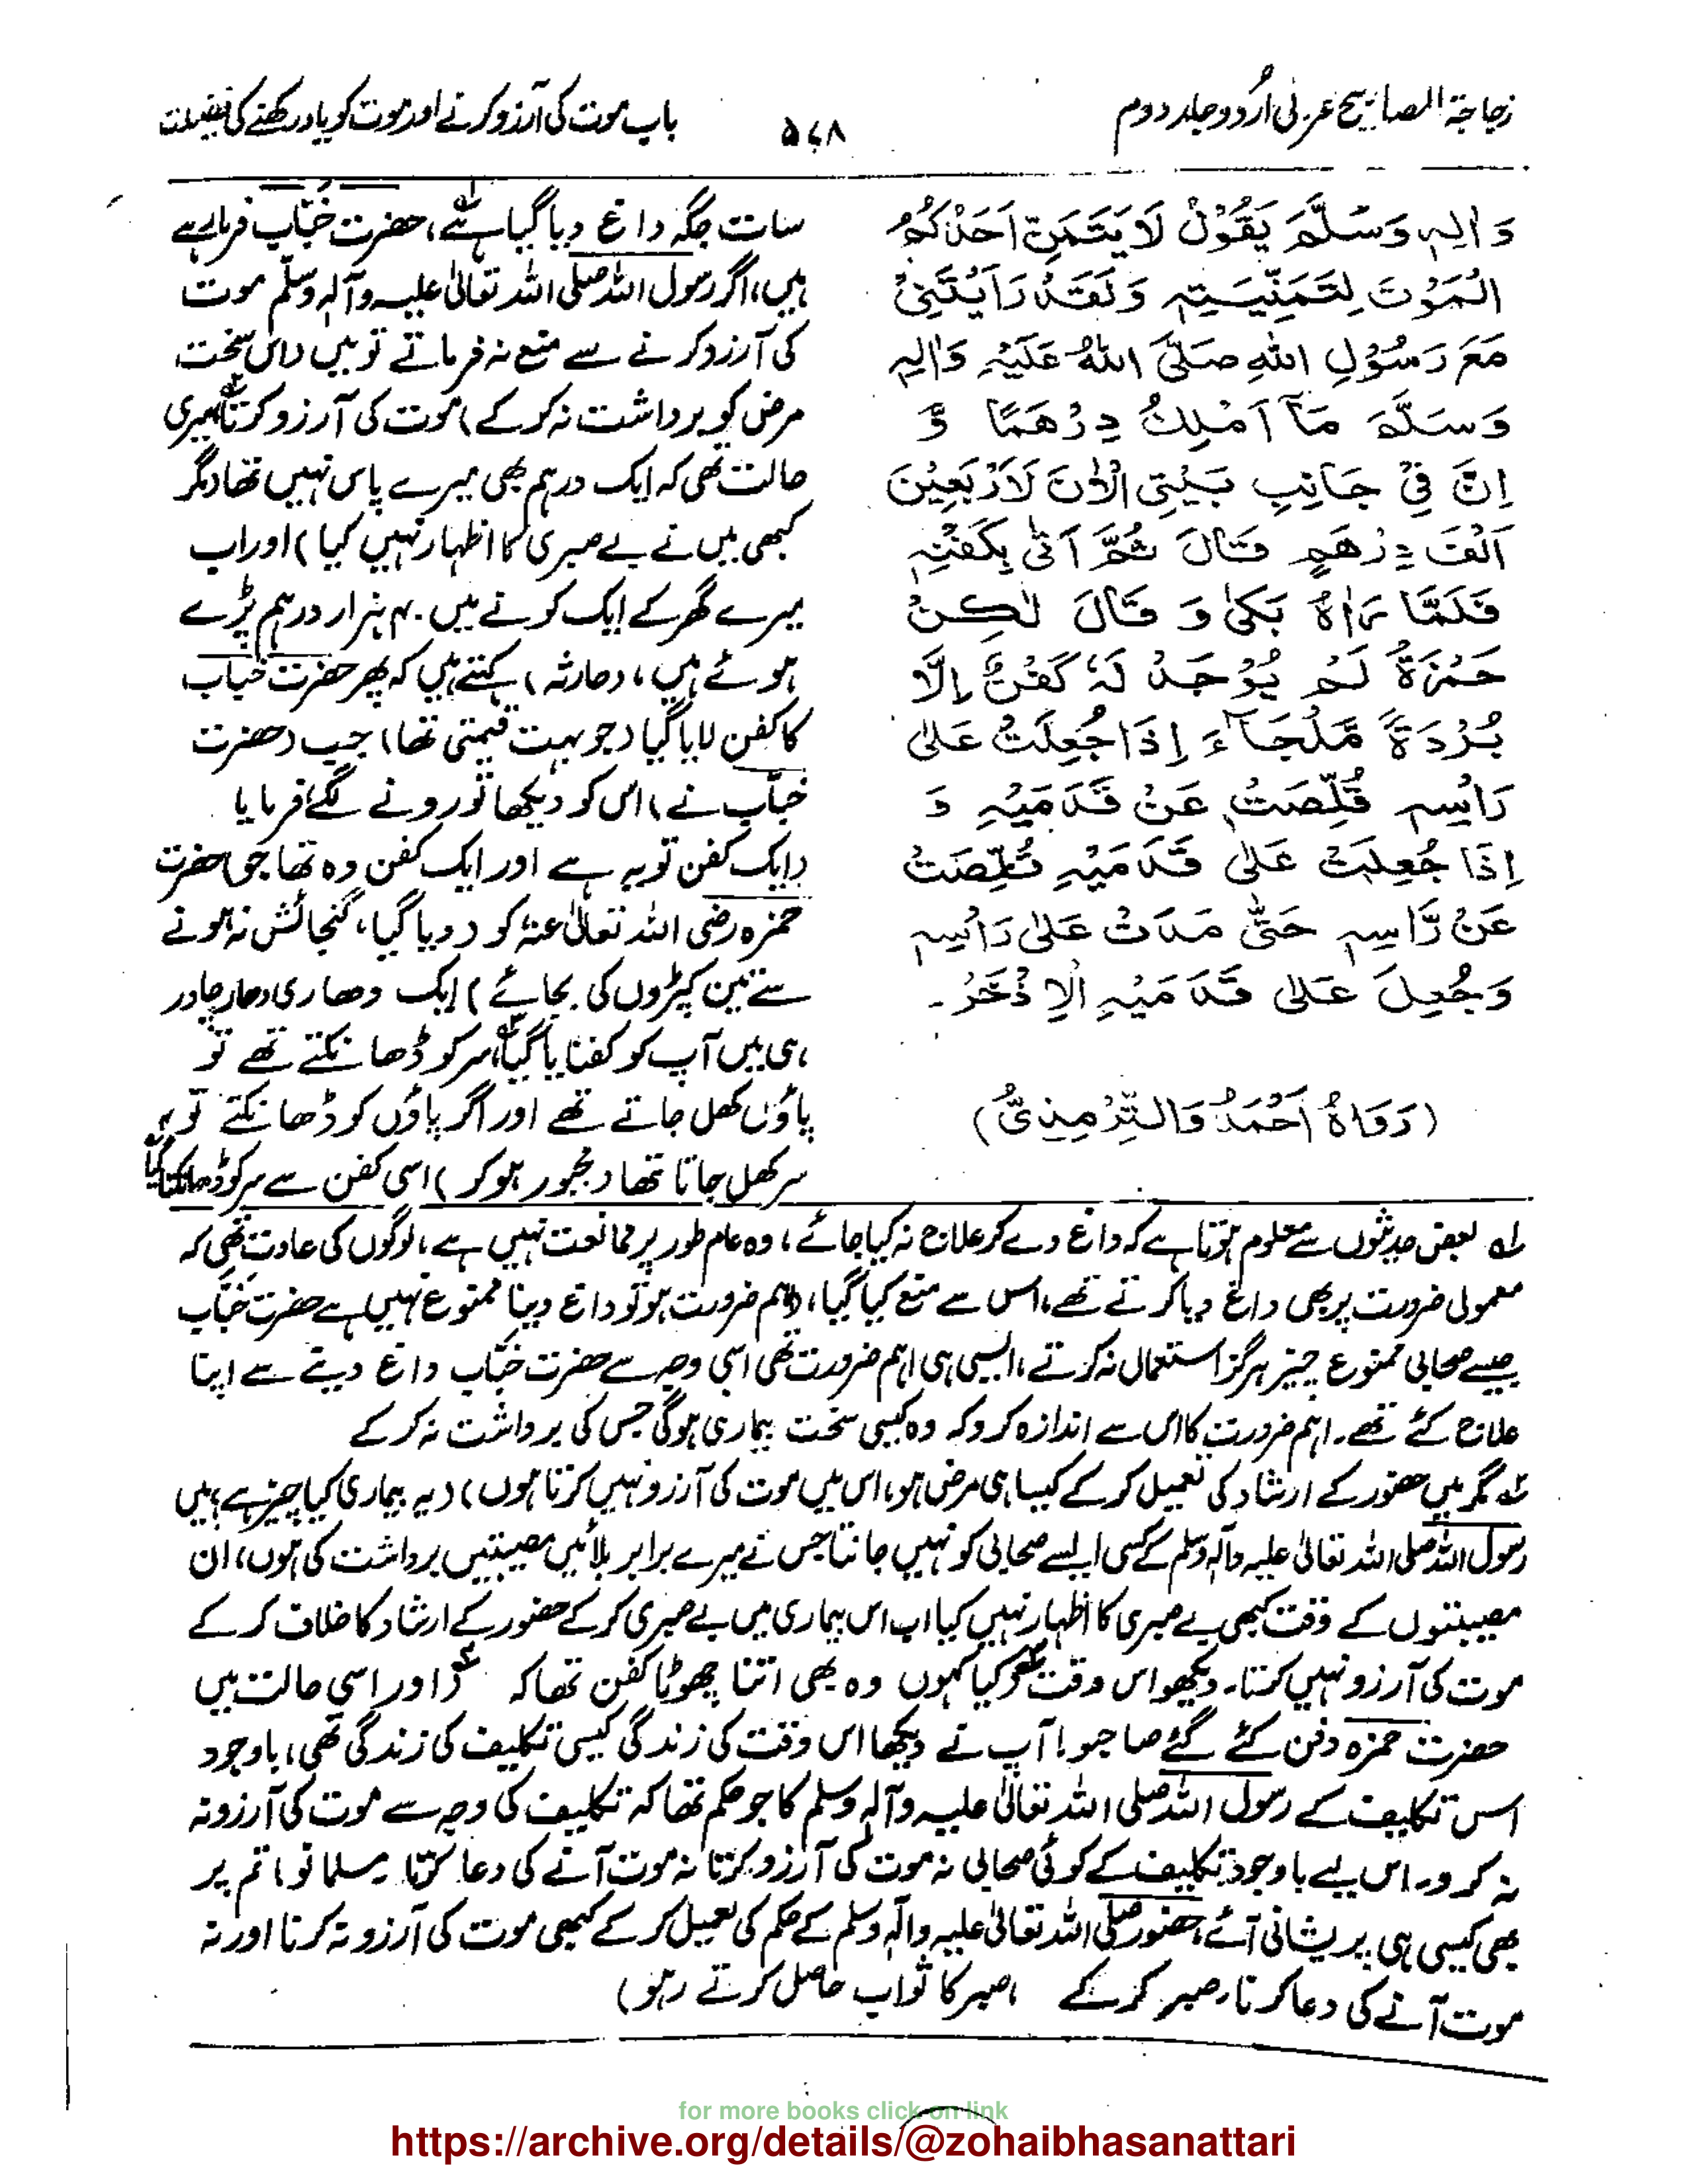 زجاجۃ المصابیح عربی اُردو جلد دوم
۵۶۸
باب موت کی آرزو کرنے اور موت کو یاد رکھنے کی فضیلت
وَاٰلِهٖ وَسَلَّمَ يَقُوْلُ لَا يَتَمَنَّ اَحَدُكُمُ
الْمَوْتَ لَتَمَنَّيْتُهٗ وَلَقَدْ رَاَيْتُنِيْ
مَعَ رَسُوْلِ اللّٰهِ صَلَّى اللّٰهُ عَلَيْهِ وَاٰلِهٖ
وَسَلَّمَ مَآ اَمْلِكُ دِرْهَمًا وَّ
اِنَّ فِيْ جَانِبِ بَيْتِيَ الْاٰنَ لَاَرْبَعِيْنَ
اَلْفَ دِرْهَمٍ قَالَ ثُمَّ اَتٰى بِكَفَنِهٖ
فَلَمَّا رَاٰهُ بَكٰى وَ قَالَ لٰكِنْ
حَمْزَةُ لَمْ يُوْجَدْ لَهٗ كَفَنٌ اِلَّا
بُرْدَةٌ مَّلْحَآءَ اِذَا جُعِلَتْ عَلٰى
رَاْسِهٖ قُلِّصَتْ عَنْ قَدَمَيْهِ وَ
اِذَا جُعِلَتْ عَلٰى قَدَمَيْهِ قُلِّصَتْ
عَنْ رَّاْسِهٖ حَتّٰى مَدَتْ عَلٰى رَاْسِهٖ
وَجُعِلَ عَلٰى قَدَمَيْهِ الْاِذْخَرُ۔
(رَوَاهُ اَحْمَدُ وَالتِّرْمِذِىُّ)
سات جگہ داغ دیا گیا ہے، حضرت خبّاب فرمارہے
ہیں، اگر رسول اللہ صلی اللہ تعالیٰ علیہ وآلہٖ وسلّم موت
کی آرزو کرنے سے منع نہ فرماتے تو میں (اس سخت
مرض کو برداشت نہ کر کے) موت کی آرزو کرتا میری
حالت تھی کہ ایک درہم بھی میرے پاس نہیں تھا (مگر
کبھی میں نے بے صبری کا اظہار نہیں کیا) اور اب
میرے گھر کے ایک کونے میں ۴۰ ہزار درہم پڑے
ہوئے ہیں، (حارثہ) کہتے ہیں کہ پھر حضرت خباب
کا کفن لایا گیا (جو بہت قیمتی تھا) جب (حضرت
خبّاب نے) اس کو دیکھا تو رونے لگے فرمایا
(ایک کفن تو یہ ہے اور ایک کفن وہ تھا جو) حضرت
حمزہ رضی اللہ تعالیٰ عنہٗ کو (دیا گیا، گنجائش نہ ہونے
سے تین کپڑوں کی بجائے) ایک دھاری دھار چادر
ہی میں آپ کو کفنایا گیا، سر کو ڈھانکتے تھے تو
پاؤں کھل جاتے تھے اور اگر پاؤں کو ڈھانکتے تو
سر کھل جاتا تھا (مجبور ہو کر) اسی کفن سے سر کو ڈھانکا گیا
لہ بعض حدیثوں سے معلوم ہوتا ہے کہ داغ دے کر علاج نہ کیا جائے، وہ عام طور پر ممانعت نہیں ہے، لوگوں کی عادت تھی کہ
معمولی ضرورت پر بھی داغ دیا کرتے تھے، اس سے منع کیا گیا، اہم ضرورت ہو تو داغ دینا ممنوع نہیں ہے حضرت خبّاب
جیسے صحابی ممنوع چیز ہرگز استعمال نہ کرتے، ایسی ہی اہم ضرورت تھی اسی وجہ سے حضرت خبّاب داغ دیتے سے اپنا
علاج کئے تھے۔ اہم ضرورت کا اس سے اندازہ کرو کہ وہ کیسی سخت بیماری ہوگی جس کی برداشت نہ کر کے
۲ہ مگر میں حضور کے ارشاد کی تعمیل کر کے کیسا ہی مرض ہو، اس میں موت کی آرزو نہیں کرتا ہوں) (یہ بیماری کیا چیز ہے، میں
رسول اللہ صلی اللہ تعالیٰ علیہ وآلہٖ وسلم کے کسی ایسے صحابی کو نہیں جانتا جس نے میرے برابر بلائیں مصیبتیں برداشت کی ہوں، ان
مصیبتوں کے وقت کبھی بے صبری کا اظہار نہیں کیا اب اس بیماری میں بے صبری کر کے حضور کے ارشاد کا خلاف کر کے
موت کی آرزو نہیں کرتا۔ دیکھو اس وقت کیا کہوں وہ بھی اتنا چھوٹا کفن تھا کہ اور اسی حالت میں
حضرت حمزہ دفن کئے گئے صاحبو! آپ نے دیکھا اس وقت کی زندگی کیسی تکلیف کی زندگی تھی، باوجود
اس تکلیف کے رسول اللہ صلی اللہ تعالیٰ علیہ وآلہٖ وسلم کا جو حکم تھا کہ تکلیف کی وجہ سے موت کی آرزو نہ
نہ کرو۔ اس لیے باوجود تکلیف کے کوئی صحابی نہ موت کی آرزو کرتا نہ موت آنے کی دعا کرتا مسلمانو! تم پر
بھی کیسی ہی پریشانی آئے، حضور صلی اللہ تعالیٰ علیہ وآلہٖ وسلم کے حکم کی تعمیل کر کے کبھی موت کی آرزو نہ کرنا اور نہ
موت آنے کی دعا کرنا، صبر کر کے، صبر کا ثواب حاصل کرتے رہو)
for more books click on link
https://archive.org/details/@zohaibhasanattari